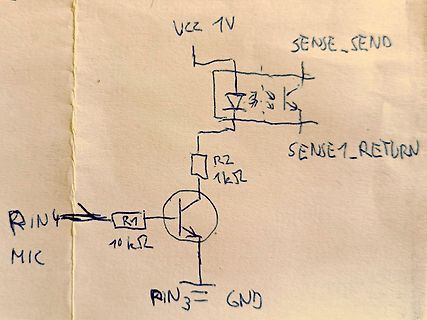 VCC 1V
SENSE_SEND
SENSE1_RETURN
R2
1kΩ
PIN4
R1
10kΩ
MIC
PIN3
GND